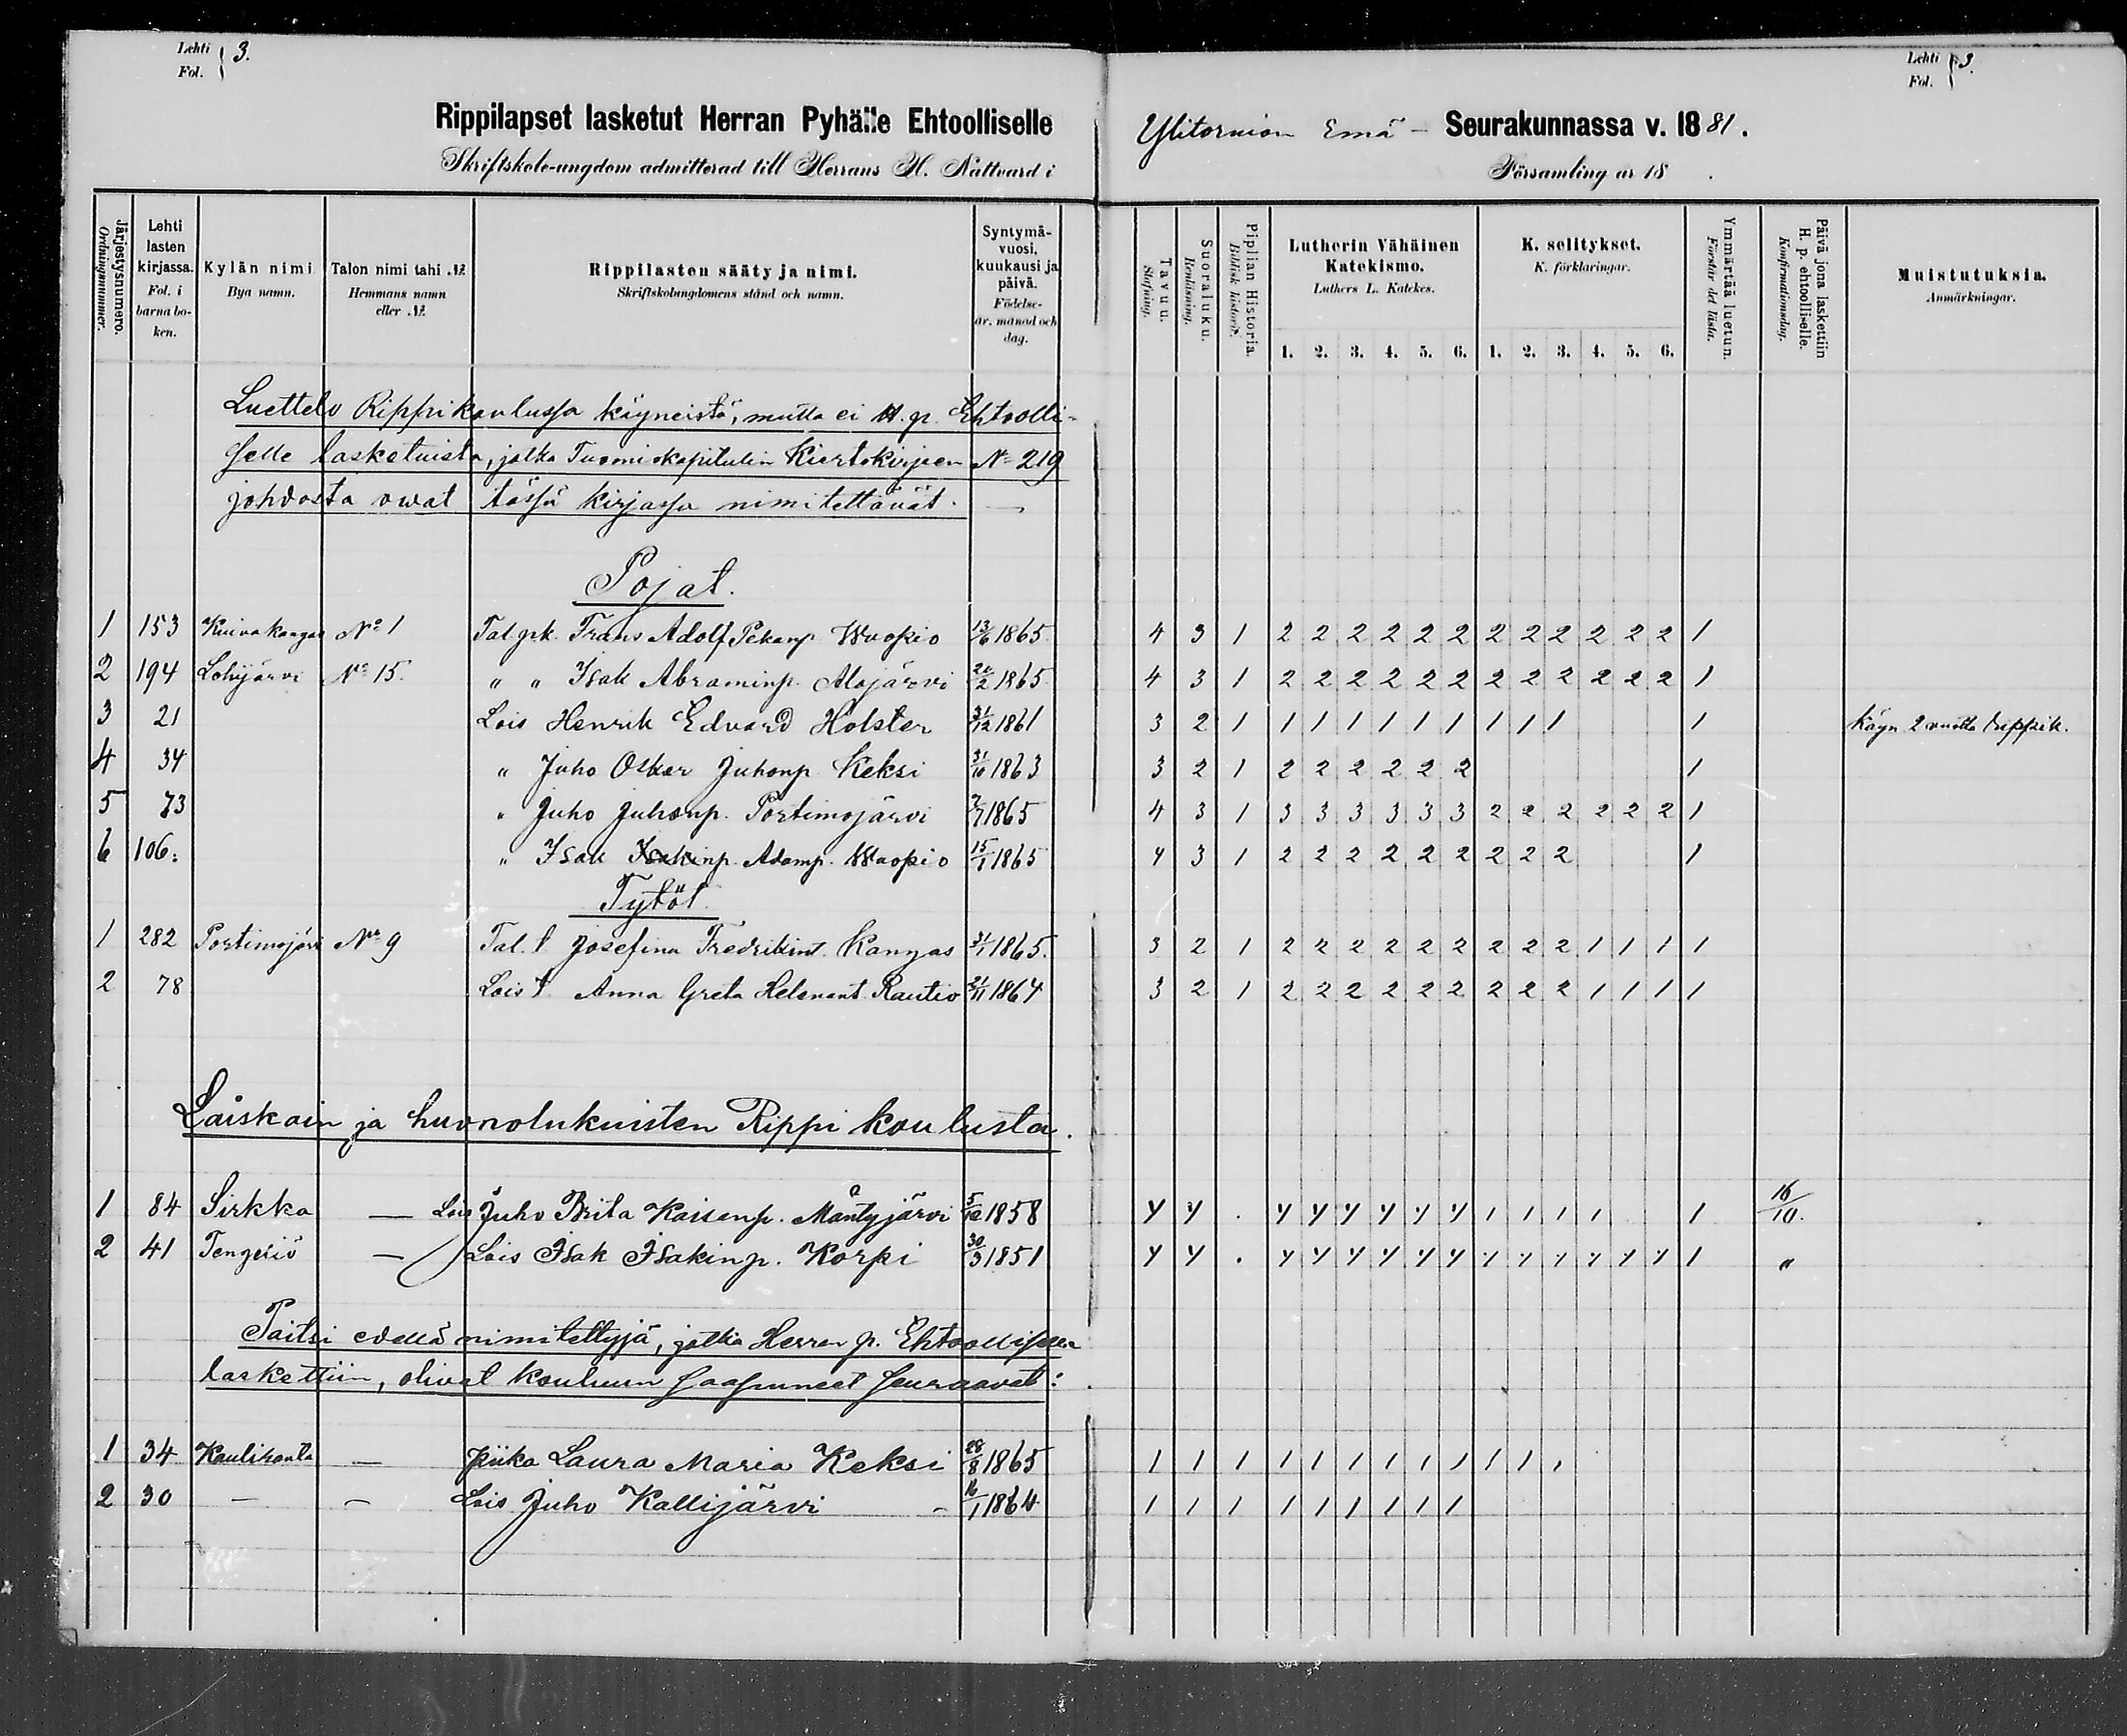 Lehti
Fol. } 3.
Rippilapset lasketut Herran Pyhälle Ehtoolliselle
Skriftskole-ungdom admitterad till Herrans H. Nattvard i
Lehti
Fol. } 3.
Ylitornion Emä - Seurakunnassa v. 1881.
Församling år 18 .
Järjestysnumero. Ordningsnummer.
Lehti lasten kirjassa. Fol. i barna boken.
Kylän nimi Bya namn.
Talon nimi tahi № Hemmans namn eller №
Rippilasten sääty ja nimi. Skriftskolungdomens stånd och namn.
Syntymävuosi, kuukausi ja päivä. Födelseår, månad och dag.
Tavuu. Stafning.
Suoraluku. Renläsning.
Piplian Historia. Biblisk historie.
Lutherin Vähäinen Katekismo. Luthers L. Katekes.
K. selitykset. K. förklaringar.
Ymmärtää luetun. Förstår det lästa.
Päivä jona laskettiin H. p. ehtoolliselle. Konfirmationsdag.
Muistutuksia. Anmärkningar.
1. 2. 3. 4. 5. 6. 1. 2. 3. 4. 5. 6.
Luettelo Rippikoulussa käyneistä, mutta ei H. p. Ehtoolli-
selle lasketuista, jotka Tuomiokapitulin Kiertokirjeen № 219
johdosta owat tässä kirjassa nimitettävät. —
Pojat.
1 153 Kuivakangas № 1 Tal. pk. Frans Adolf Pekanp. Wuopio 13/6 1865 4 3 1 2 2 2 2 2 2 2 2 2 2 2 2 1
2 194 Lohijärvi № 15. " " Isak Abraminp. Alajärvi /2 1865 4 3 1 2 2 2 2 2 2 2 2 2 2 2 2 1
3 21 Lois Henrik Edvard Holster 31/12 1861 3 2 1 1 1 1 1 1 1 1 1 1 1 Käyn. 2 vuotta rippik.
4 34 " Juho Oskar Juhonp. Keksi 31/10 1863 3 2 1 2 2 2 2 2 2 1
5 73 " Juho Juhonp. Portimojärvi 7/7 1865 4 3 1 3 3 3 3 3 3 2 2 2 2 2 2 1
6 106: " Isak Isakinp. Adamp. Wuopio 15/1 1865 4 3 1 2 2 2 2 2 2 2 2 2 1
Tytöt
1 282 Portimojärvi № 9 Tal. t. Josefina Fredrikint. Kangas 31/1 1865. 3 2 1 2 2 2 2 2 2 2 2 2 1 1 1 1
2 78 Lois t. Anna Greta Helenant. Rautio 21/11 1864 3 2 1 2 2 2 2 2 2 2 2 2 1 1 1 1
Laiskain ja huonolukuisten Rippi koulusta.
1 84 Sirkka — Lois Juho Brita Kaisanp. Mäntyjärvi 5/12 1858 y y . y y y y y y 1 1 1 1 1 16/10.
2 41 Tengeliö — Lois Isak Isakinp. Korpi 30/3 1851 y y . y y y y y y y y y y y y 1 "
Paitsi edellä nimitettyjä, jotka Herran p. Ehtoolliselle
laskettiin, olivat kouluun saapuneet seuraavat:
1 34 Kaulinranta — piika Laura Maria Keksi 28/8 1865 1 1 1 1 1 1 1 1 1 1 1 1
2 30 — — Lois Juho Kallijärvi - 16/1 1864 1 1 1 1 1 1 1 1 1